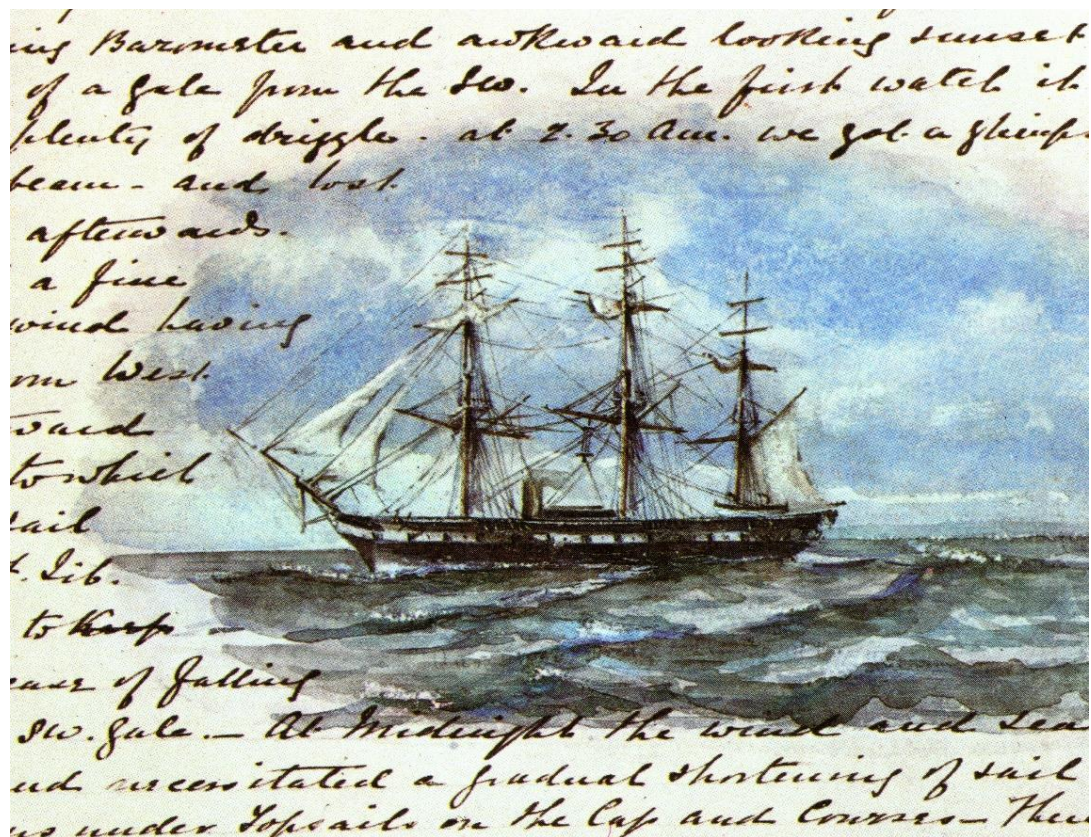 ing Barometer and awkward looking sunset
of a gale from the SW. In the first watch it
plenty of drizzle - at 2.30 Am. we got a glimps
beam - and lost
afterwards.
a fine
wind having
om West
ward
to which
sail
t. Jib.
to keep
ease of falling
SW. gale. — At Midnight the wind and sea
nd necessitated a gradual shortening of sail
us under Topsails on the Cap and Courses — Then